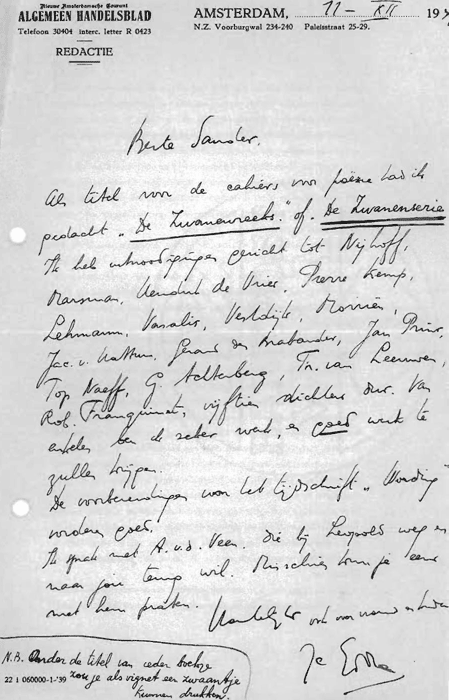 Nieuwe Amsterdamsche Courant
ALGEMEEN HANDELSBLAD
Telefoon 30404 interc. letter R 0423
REDACTIE
AMSTERDAM, 11 - XII 194
N.Z. Voorburgwal 234-240 Paleisstraat 25-29.
Beste Sander,
Als titel voor de cahiers voor poëzie had ik
gedacht „De Zwanenreeks" of De Zwanenserie
Ik heb uitnoodigingen gericht tot Nijhoff,
Marsman, Hendrik de Vries, Pierre Kemp,
Lehmann, Vasalis, Vestdijk, Morriën,
Jac. v. Hattum, Gerard den Brabander, Jan Prins,
Top Naeff, G. Achterberg, Th. van Leeuwen,
Rob. Franquinet, vijftien dichters dus. Van
enkelen ben ik zeker werk, en goed werk te
zullen krijgen.
De voorbereidingen voor het tijdschrift „Wording"
vorderen goed.
Ik sprak met A. v.d. Veen. die bij Leopold weg en
naar jou terug wil. Misschien kun je eens
met hem praten. Hartelijks ook voor vrouw en
Je Ed
N.B. Onder de titel van ieder boekje
zou je als vignet een zwaantje
kunnen drukken.
22 i 060000-1-'39